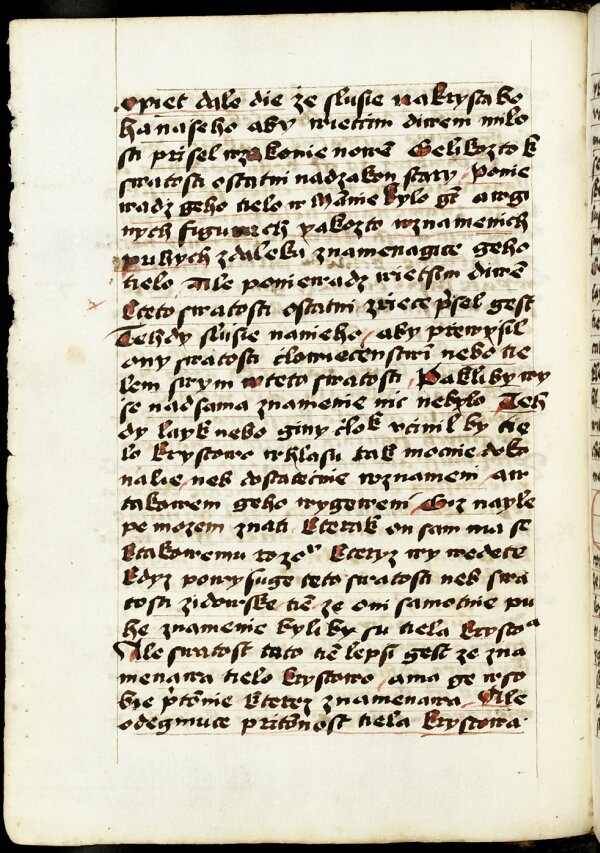 opiet dale die že slusie nakrystа bo
ha naseho aby wiettim diwem milo
sti prisel wzakonie nowem Gelikozto k
swatosti ostatni nadzakon stary Ponie
wadz geho tielo w Mannie bylo gest a wgi
nych figurach yakozto wznamenich
puhych zdaleka znamenagice geho
tielo Ale poniewadz wietsim diwem
kteto swatosti ostatni zwiece prisel gest
Tehdy slusie nanieho aby prewysil
ony swatosti clowiecenstwi nebo tie
lem swym wteto swatosti Pakliby wy
se nad sama znamenie nic nebylo Teh
dy layk nebo giny clok vcinil by tie
lo krystowo w hlasu tak mocnie doko
nalie neb dostatecnie wznameni a w
takowem geho wygeweni Giz nayle
pe mozem znati kterak on sam ma se
ktakowemu rozo kteryz wy wedete
kdyz powysuge teto swatosti neb swa
tosti zidowske tiem ze oni samotnie pu
he znamenie byli by su tiela krystowa
Ale swatost tato tiem lepsi gest ze zna
menawa tielo krystowo a ma ge w so
bie pritomnie kterez znamenawa Ale
odegmuce pritomnost tiela krystowa